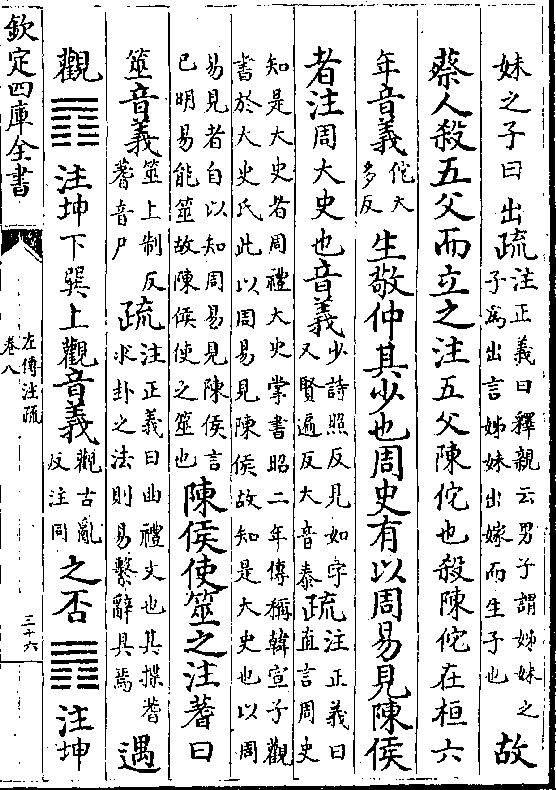 妹之子曰出疏注正義曰釋親云男子謂姊妹之子為出言姊妹出嫁而生子也故
蔡人殺五父而立之注五父陳佗也殺陳佗在桓六
年音義佗大多反生敬仲其少也周史有以周易見陳侯
者注周大史也音義少詩照反見如字又賢遍反大音泰疏注正義曰直言周史
知是大史者周禮大史掌書昭二年傳稱韓宣子觀
書於大史氏此以周易見陳侯故知是大史也以周
易見者自以知周易見陳侯言已明易能筮故陳侯使之筮也陳侯使筮之注蓍曰
筮音義筮上制反蓍音尸疏注正義曰曲禮文也其揲蓍求卦之法則易繫辭具焉遇
觀䷓注坤下巽上觀音義觀古亂反注同之否䷋注坤
欽定四庫全書
左傳注疏
卷八
三十六